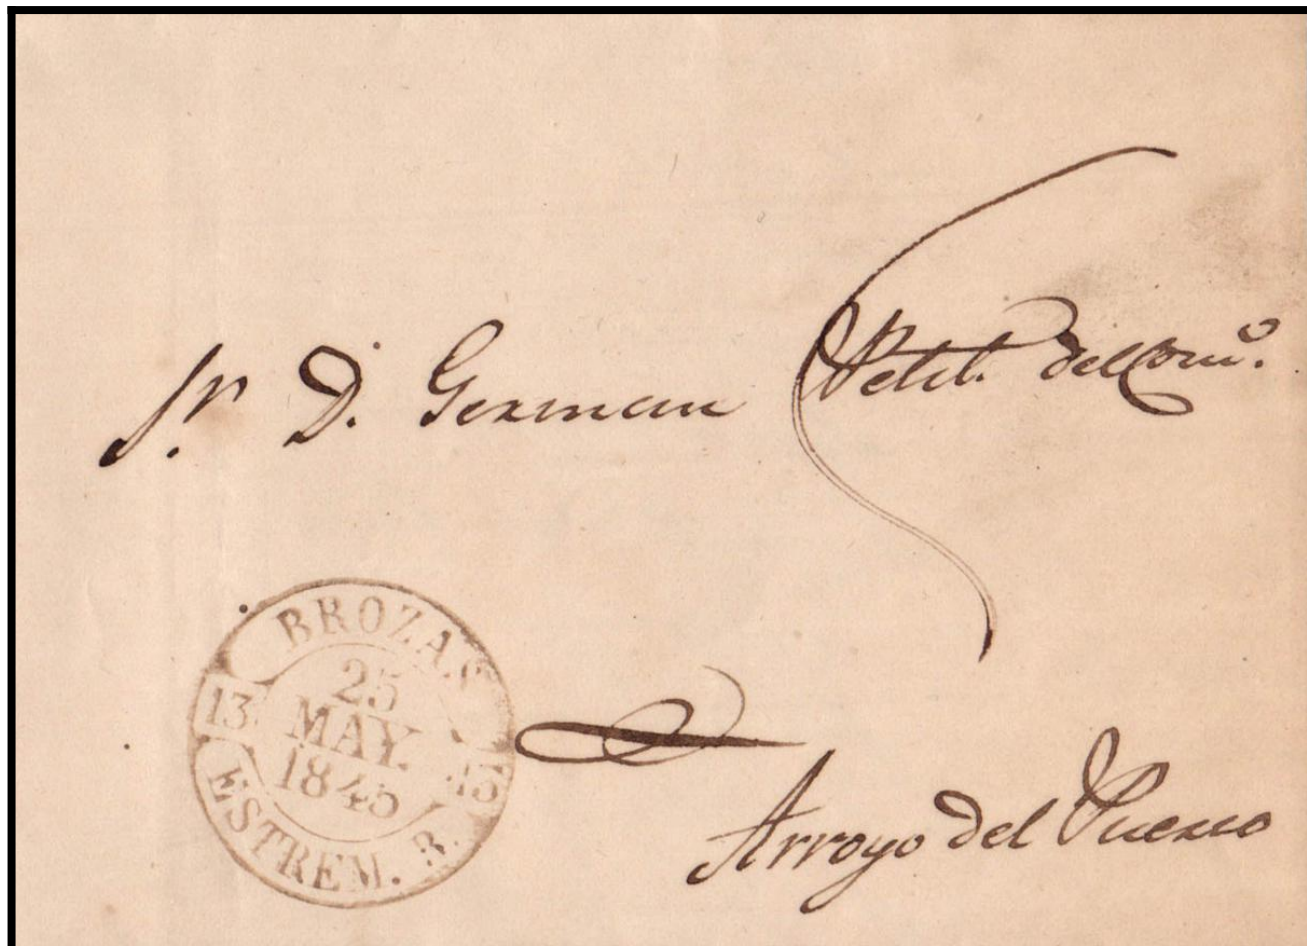 Sr. D. German Petit. del Com.º
BROZAS
13 25 13
MAY.
1845
ESTREM. B.
Arroyo del Puerco